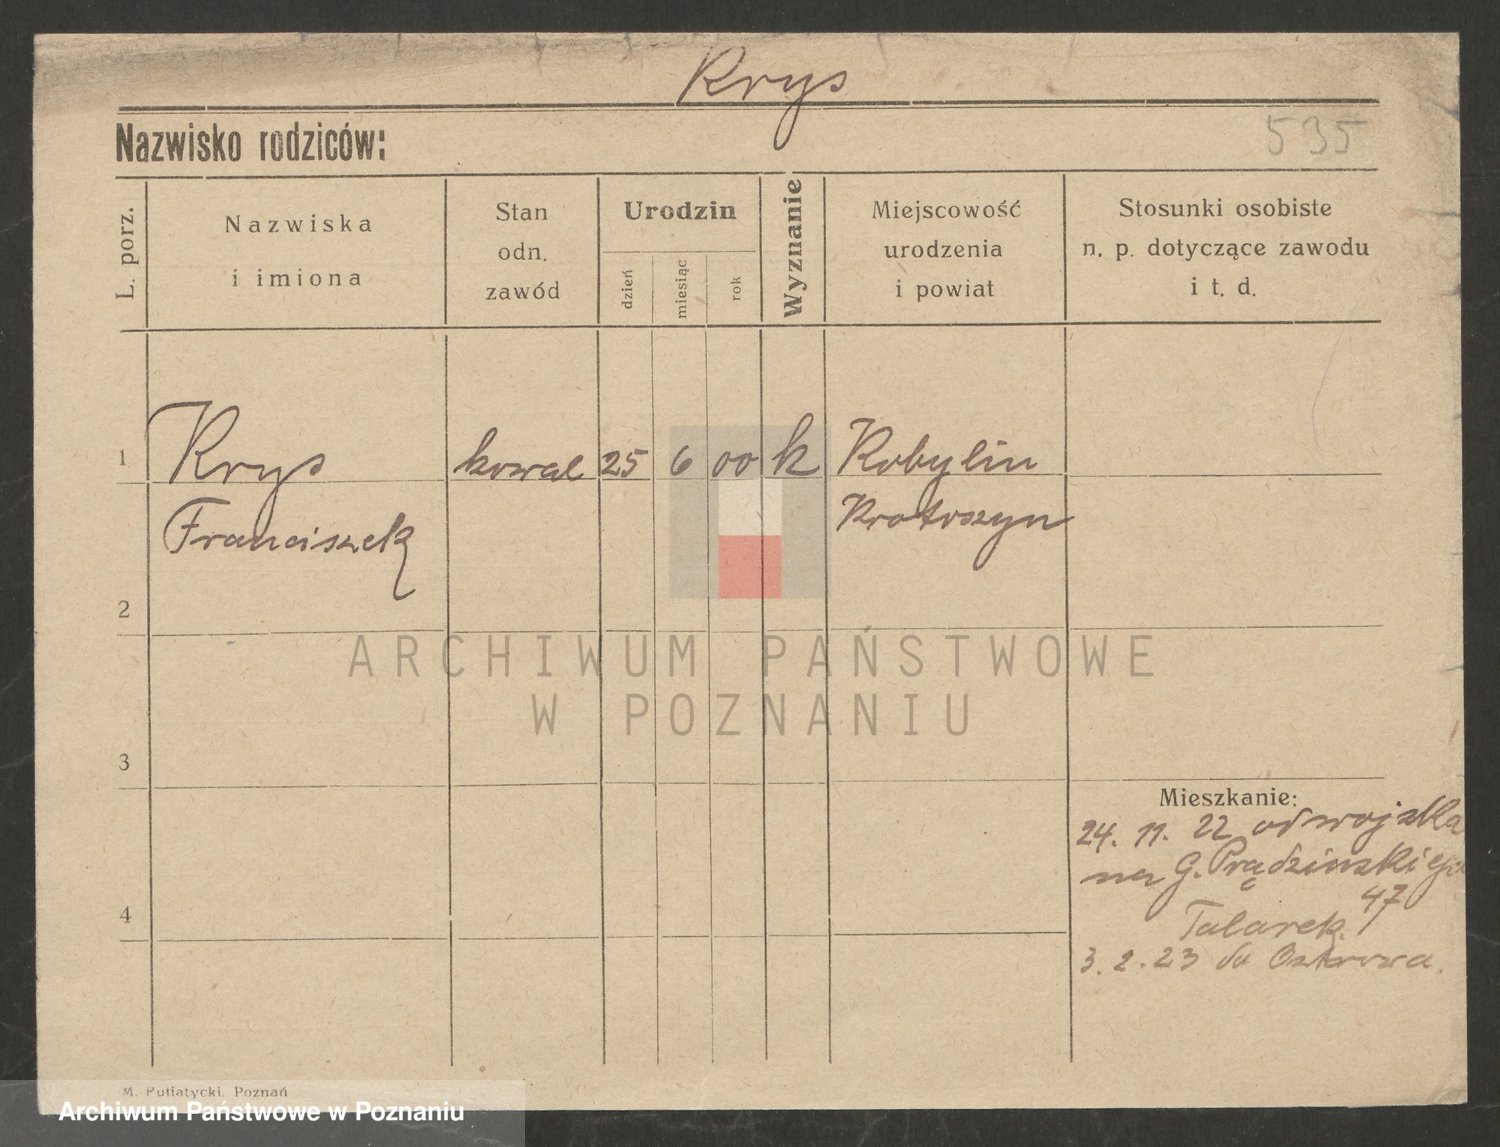 Krys
Nazwisko rodziców:
535
L. porz.
Nazwiska
i imiona
Stan
odn.
zawód
Urodzin
dzień
miesiąc
rok
Wyznanie
Miejscowość
urodzenia
i powiat
Stosunki osobiste
n. p. dotyczące zawodu
i t. d.
1
Krys
Franciszek
kowal
25
6
00
k
Kobylin
Krotoszyn
2
ARCHIWUM PAŃSTWOWE
W POZNANIU
3
Mieszkanie:
24. 11. 22 od wojska
na G. Prądzinskiego
47
Talarek.
3. 2. 23 do Ostrowa.
4
M. Putiatycki, Poznań
Archiwum Państwowe w Poznaniu